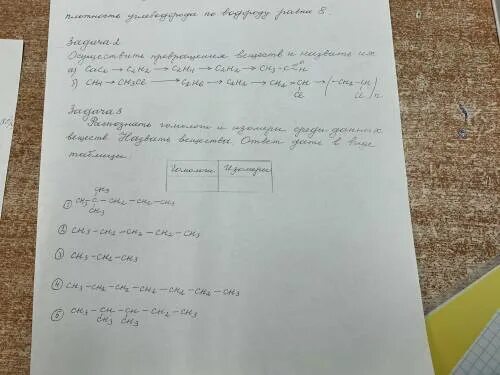 плотность углеводорода по водороду равна 8.
Задача 2
Осуществить превращения веществ и назвать их
а) CaC2 → C2H2 → C2H4 → C2H2 → CH3-C=O H
б) CH4 → CH3Cl → C2H6 → C2H2 → CH2=CH → (-CH2-CH)n
Cl Cl
Задача 3
Распознать гомологи и изомеры среди данных
веществ. Назвать вещества. Ответ дать в виде
таблицы:
Гомологи Изомеры
CH3
① CH3-C-CH2-CH2-CH3
CH3
② CH3-CH2-CH2-CH2-CH3
③ CH3-CH2-CH3
④ CH3-CH2-CH2-CH2-CH2-CH2-CH3
⑤ CH3-CH-CH-CH2-CH3
CH3 CH3